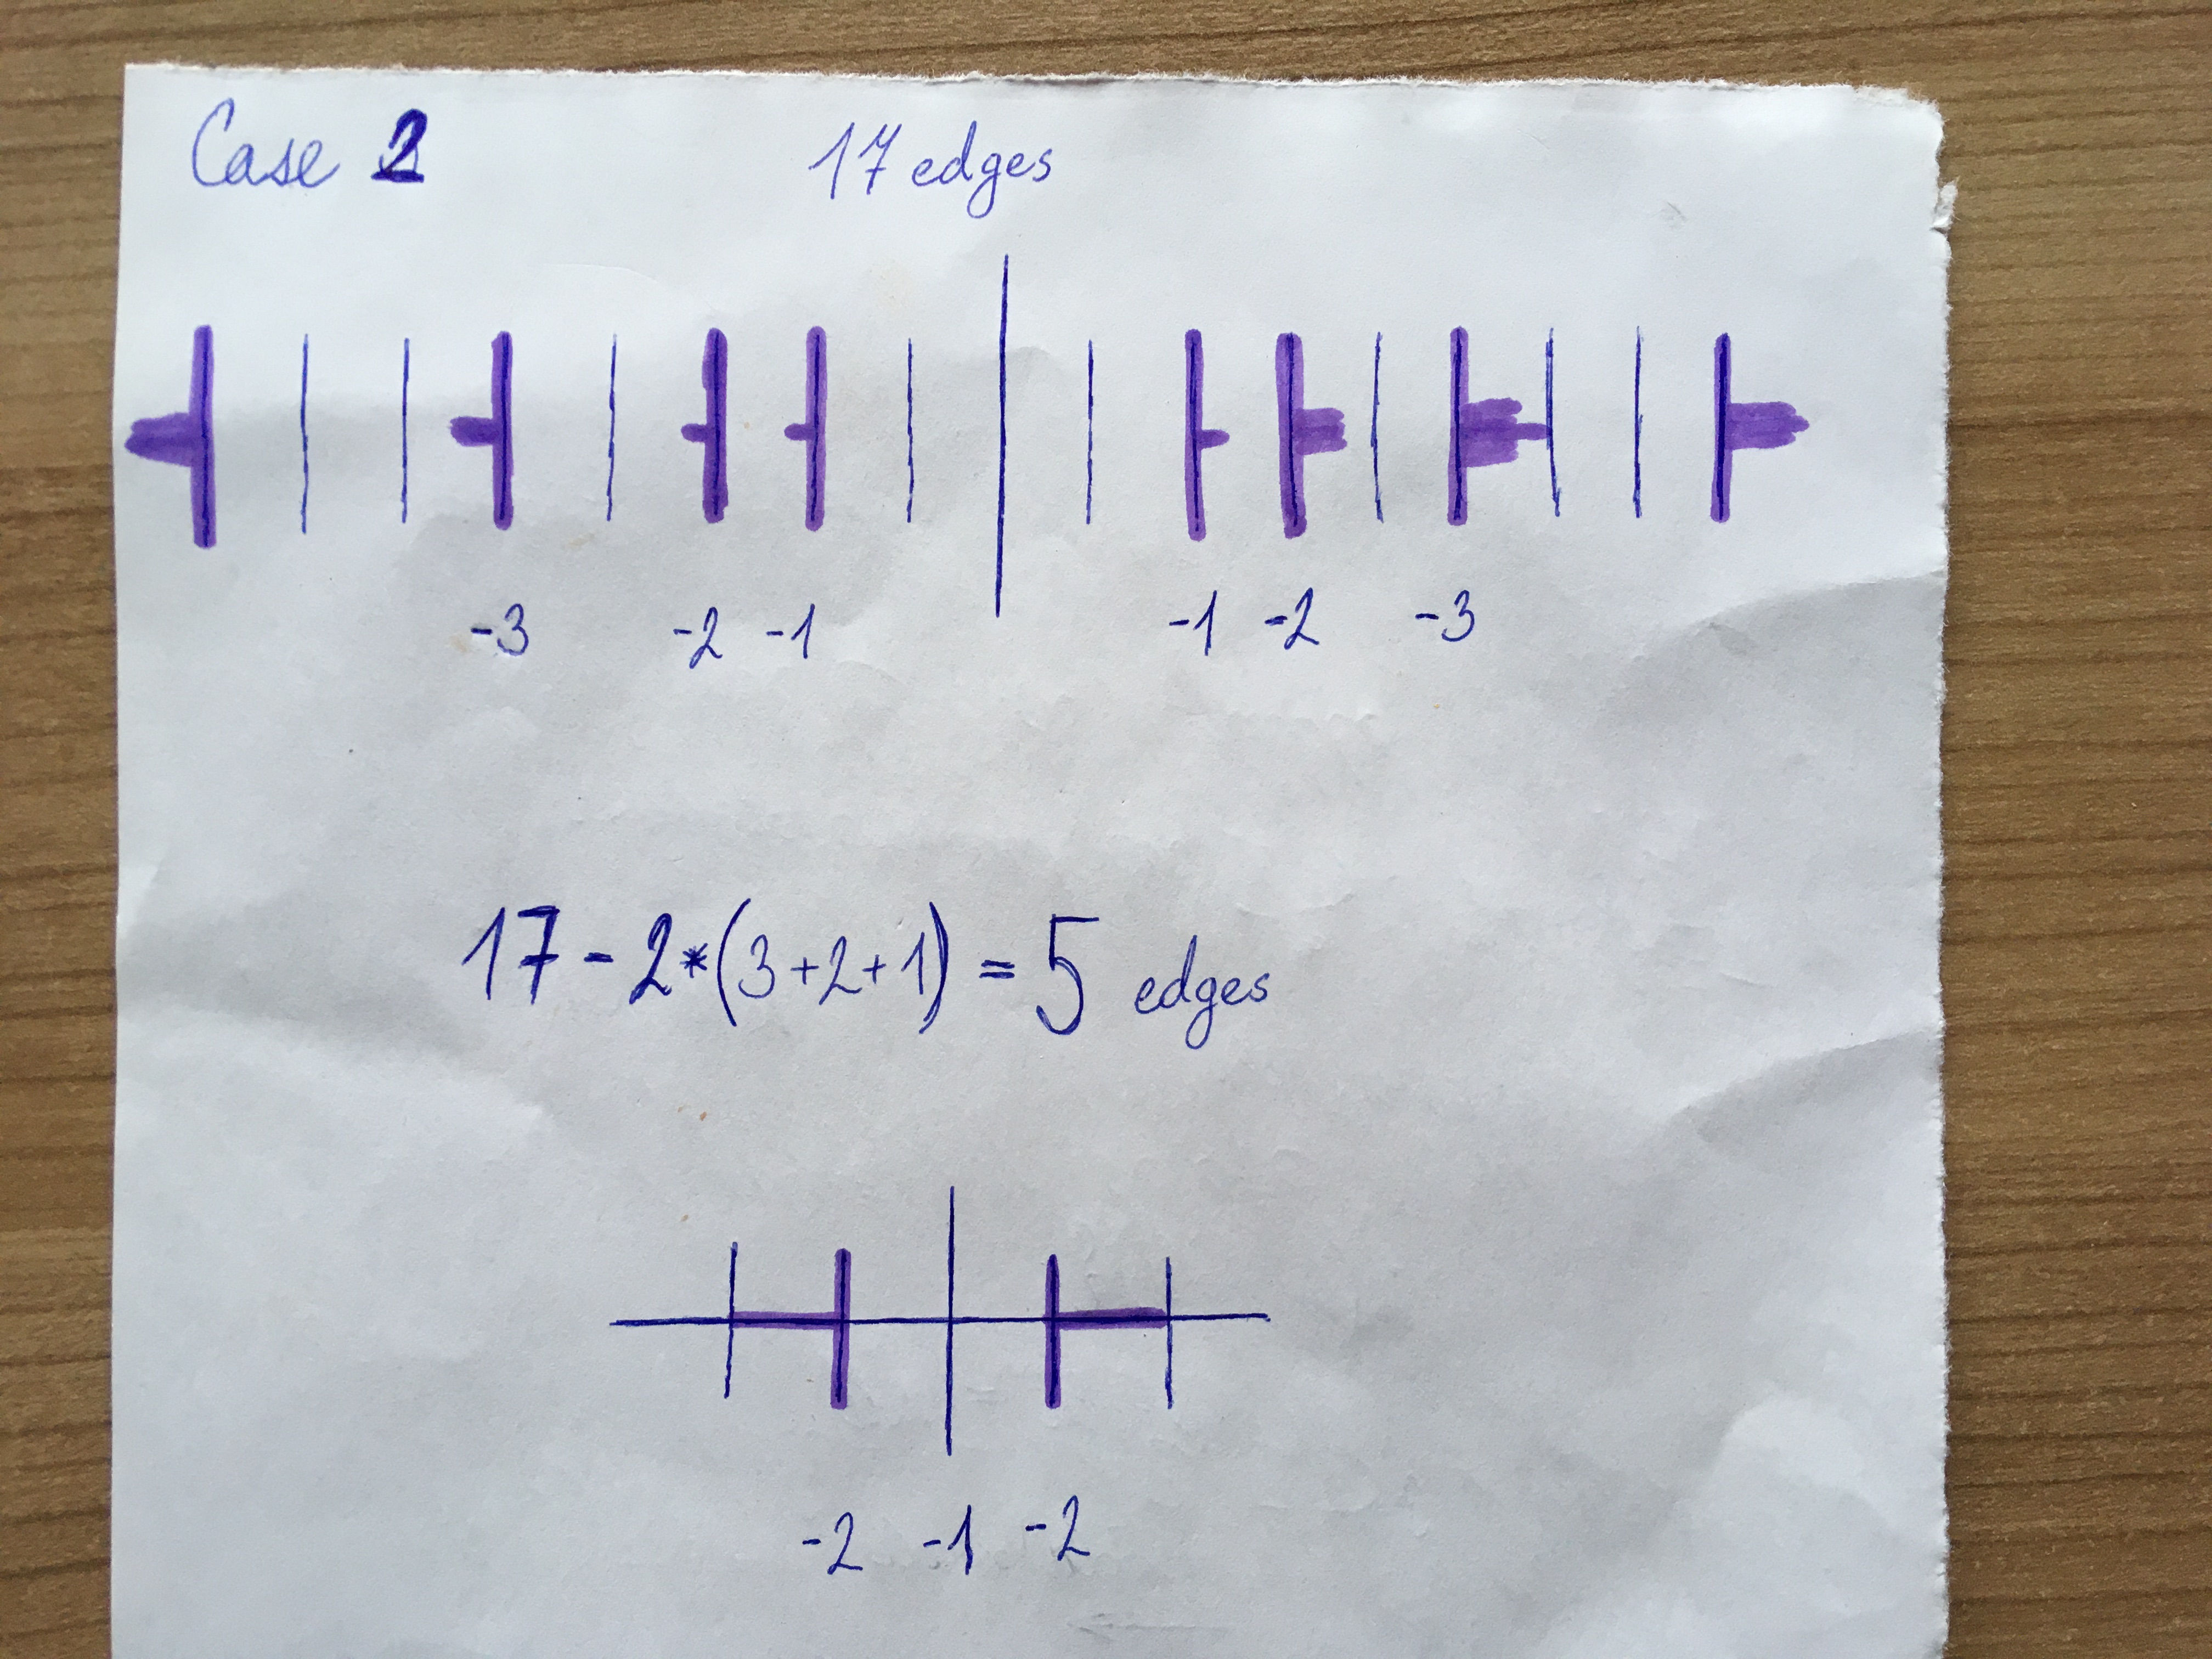 Case 2
17 edges
-3 -2 -1 -1 -2 -3
17 - 2*(3+2+1) = 5 edges
-2 -1 -2